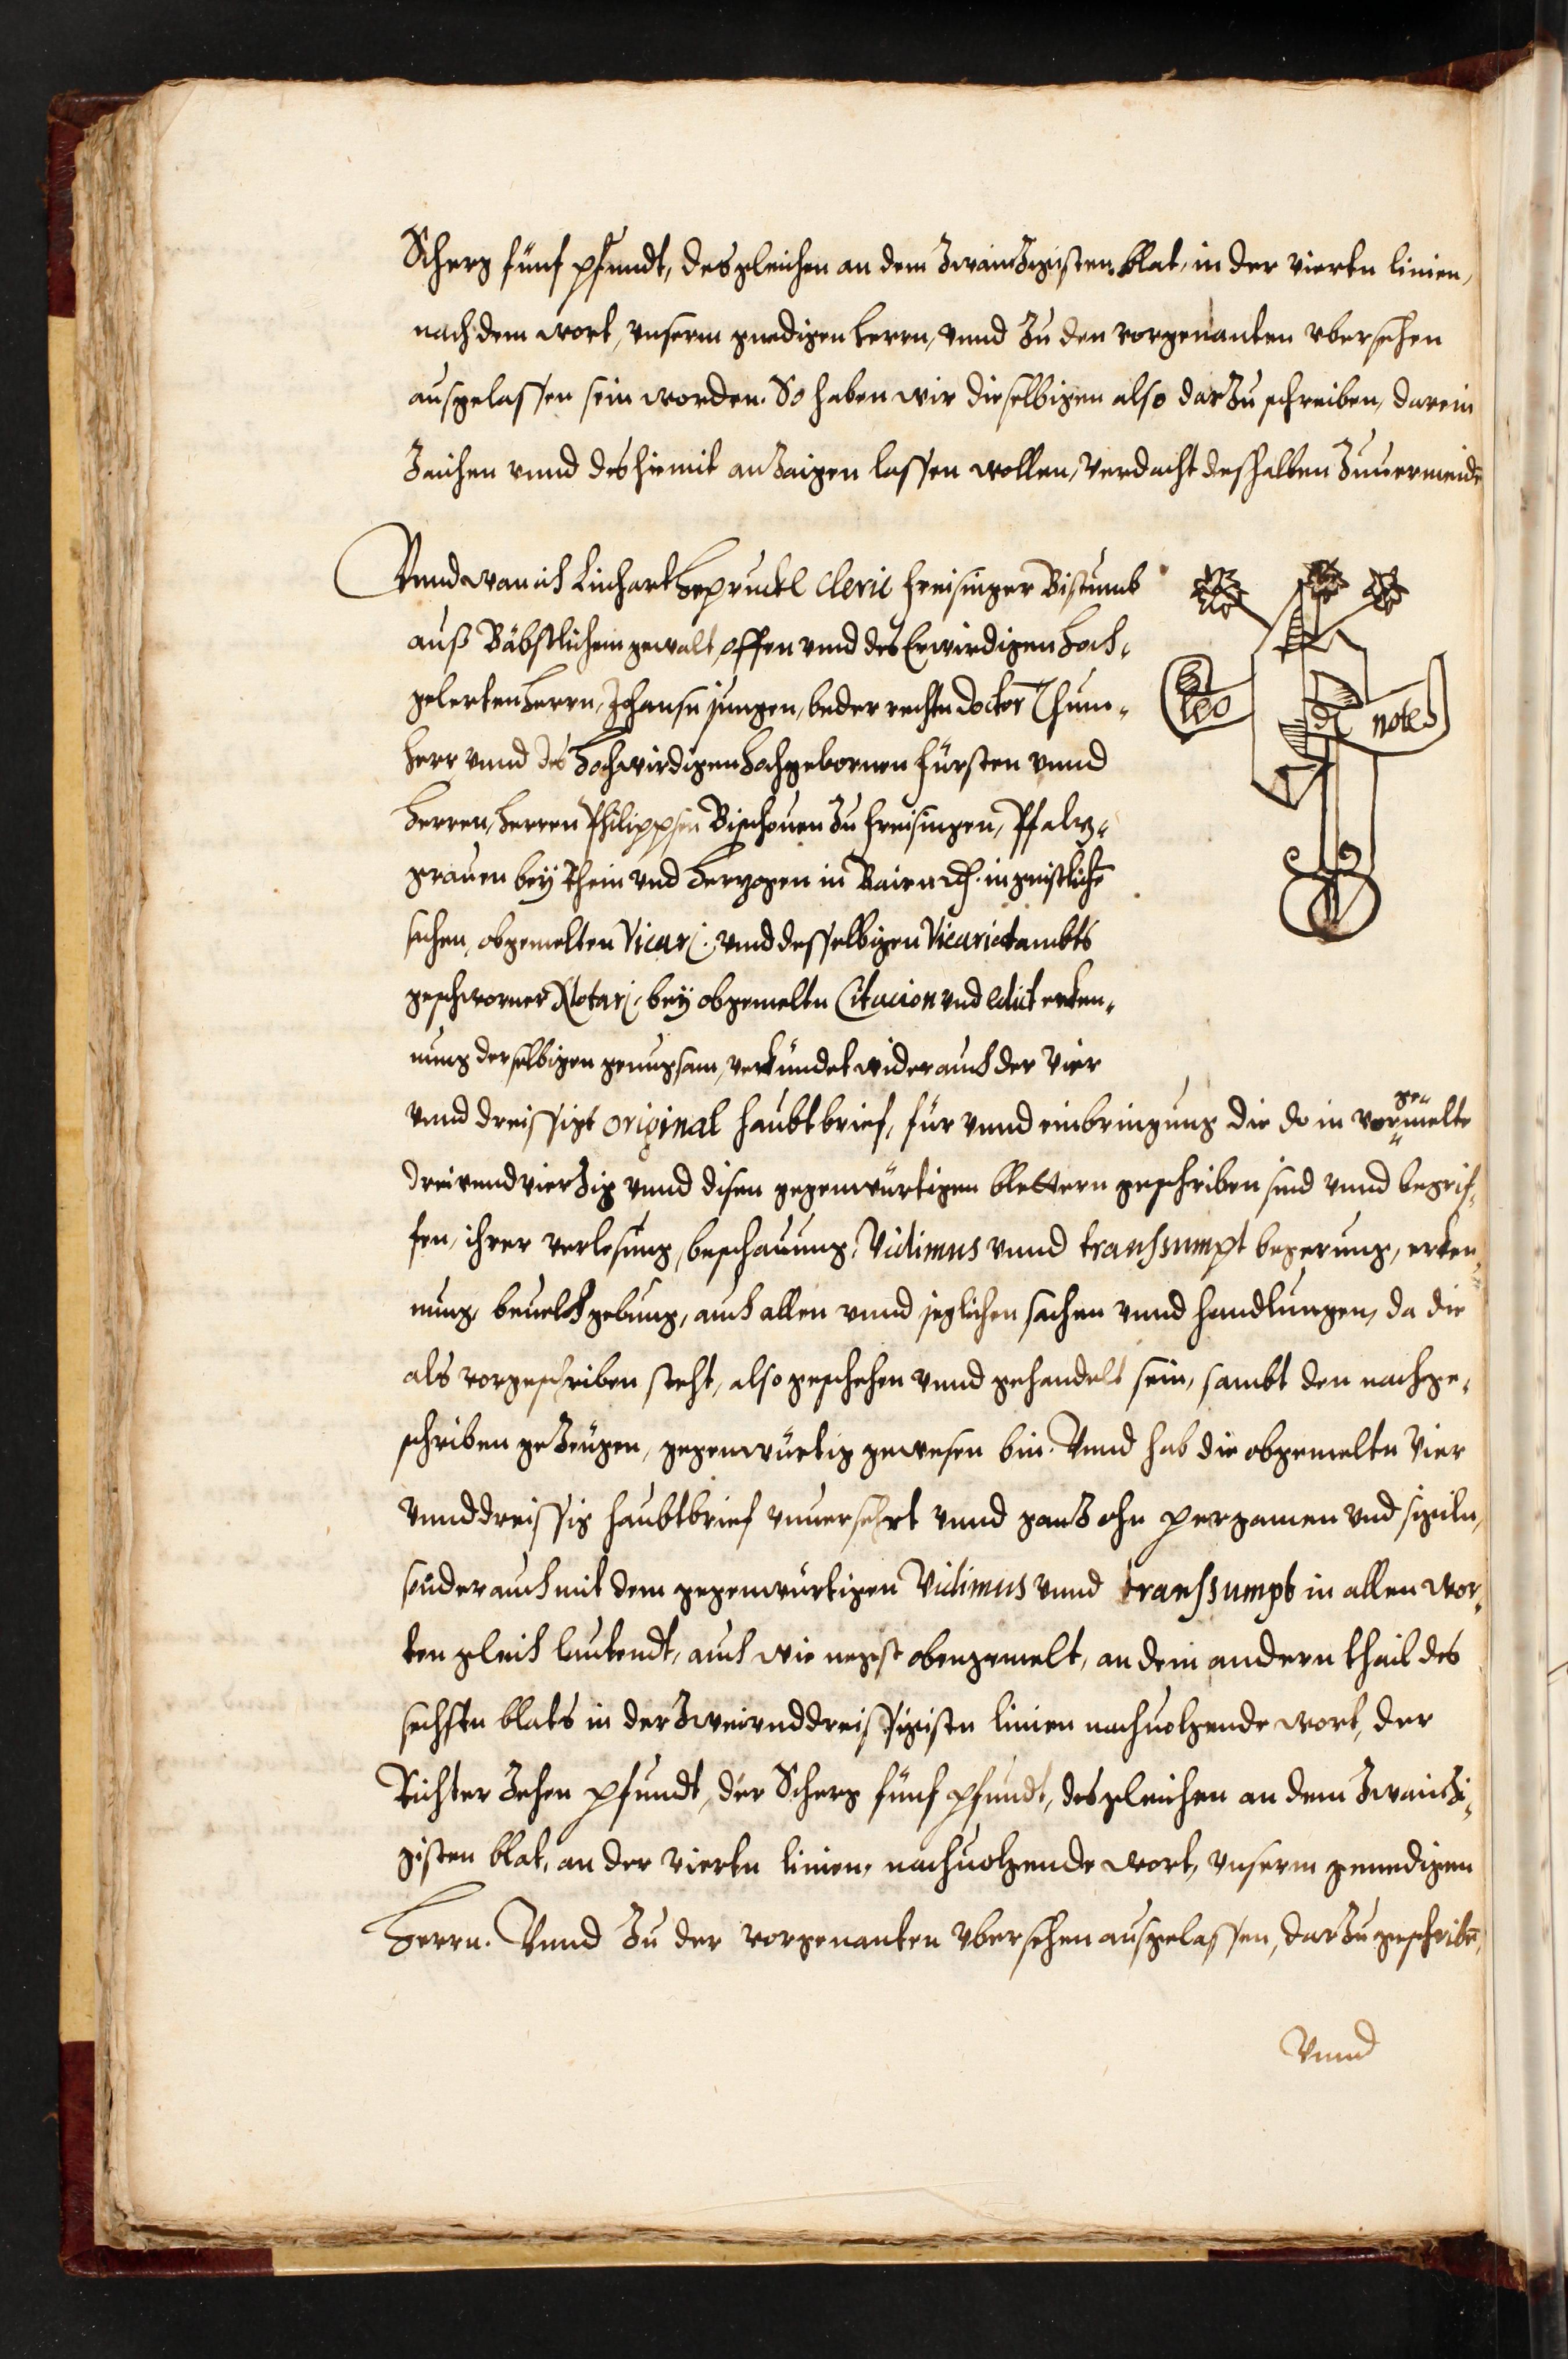 Scherg fünf pfundt, desgleichen an dem Zwainzigisten blat, in der vierten linien,
nach dem wort, vnserm gnedigen herrn, vnnd zu den vorgenanten vbersehen
ausgelassen sein worden. So haben wir dieselbigen also darzu schreiben, darein
Zaichen vnnd des hiemit anzaigen lassen wollen, Verdacht deshalben Zuuermeidē
Vnnd wan ich Linhart Heypruckl Cleric freisinger Bistumb
auß Bäbstlichem gewalt, offen vnnd des Erwirdigen Hoch„
gelerten Herrn, Johansn jungen, beder rechtn Doctor Thum„
herr vnnd des Hochwirdigen Hochgebornen fürsten vnnd
Herren, Herren Philippsen Bischouen zu freisingen, Pfalz„
grauen bey Rhein vnd Herzogen in Baiern ꝛc. in geistlichē
sachen, obgemelten Vicarj. vnnd desselbigen Vicariatambts
geschworner Notarj, bey obgemeltn Citacion vnd edict erken„
nung derselbigen genugsam, verkündet wider auch der Vier
vnnd dreissigk original haubtbrief, für vnnd einbringung die do in vorgemelte
dreiundvierzig vnnd disen gegenwürtigen blettern geschriben sind vnnd begrif„
fen, ihrer verlesung, beschauung, Vidimus vnnd transsumpt begerung, erken„
nung, beuelch gebung, auch allen vnnd jeglichen sachen vnnd handlungen, da die
als vorgeschriben steht, also geschehen vnnd gehandelt sein, sambt den nachge„
schriben gezeugen, gegenwürtig gewesen bin. Vnnd hab die obgemeltn Vier
vnnddreissig haubtbrief vnuersehrt vnnd ganz ohn pergamen vnd sigiln,
sonder auch mit dem gegenwürtigen Vidimus vnnd transsumpt in allen wor„
ten gleich lautendt, auch wie negst obengemelt, an dem andern thail des
sechstn blats in der Zweiunddreissigistn linien nachuolgende wort, der
Richter Zehen pfundt, der Scherg fünf pfundt, desgleichen an dem Zwainzi„
gisten blat, an der viertn linien, nachuolgende wort, vnserm genedigen
Herrn. Vnnd zu der vorgenanten vbersehen ausgelassen, darzu geschribē,
Vnnd